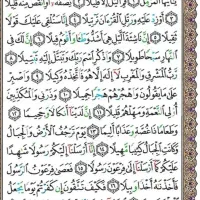 يَا أَيُّهَا الْمُزَّمِّلُ ۝١ قُمِ اللَّيْلَ إِلَّا قَلِيلًا ۝٢ نِصْفَهُ أَوِ انْقُصْ مِنْهُ قَلِيلًا
۝٣ أَوْ زِدْ عَلَيْهِ وَرَتِّلِ الْقُرْآنَ تَرْتِيلًا ۝٤ إِنَّا سَنُلْقِي عَلَيْكَ قَوْلًا
ثَقِيلًا ۝٥ إِنَّ نَاشِئَةَ اللَّيْلِ هِيَ أَشَدُّ وَطْئًا وَأَقْوَمُ قِيلًا ۝٦ إِنَّ لَكَ فِي
النَّهَارِ سَبْحًا طَوِيلًا ۝٧ وَاذْكُرِ اسْمَ رَبِّكَ وَتَبَتَّلْ إِلَيْهِ تَبْتِيلًا ۝٨
رَبُّ الْمَشْرِقِ وَالْمَغْرِبِ لَا إِلَٰهَ إِلَّا هُوَ فَاتَّخِذْهُ وَكِيلًا ۝٩ وَاصْبِرْ
عَلَىٰ مَا يَقُولُونَ وَاهْجُرْهُمْ هَجْرًا جَمِيلًا ۝١٠ وَذَرْنِي وَالْمُكَذِّبِينَ
أُولِي النَّعْمَةِ وَمَهِّلْهُمْ قَلِيلًا ۝١١ إِنَّ لَدَيْنَا أَنْكَالًا وَجَحِيمًا ۝١٢
وَطَعَامًا ذَا غُصَّةٍ وَعَذَابًا أَلِيمًا ۝١٣ يَوْمَ تَرْجُفُ الْأَرْضُ وَالْجِبَالُ
وَكَانَتِ الْجِبَالُ كَثِيبًا مَهِيلًا ۝١٤ إِنَّا أَرْسَلْنَا إِلَيْكُمْ رَسُولًا شَاهِدًا
عَلَيْكُمْ كَمَا أَرْسَلْنَا إِلَىٰ فِرْعَوْنَ رَسُولًا ۝١٥ فَعَصَىٰ فِرْعَوْنُ الرَّسُولَ
فَأَخَذْنَاهُ أَخْذًا وَبِيلًا ۝١٦ فَكَيْفَ تَتَّقُونَ إِنْ كَفَرْتُمْ يَوْمًا يَجْعَلُ